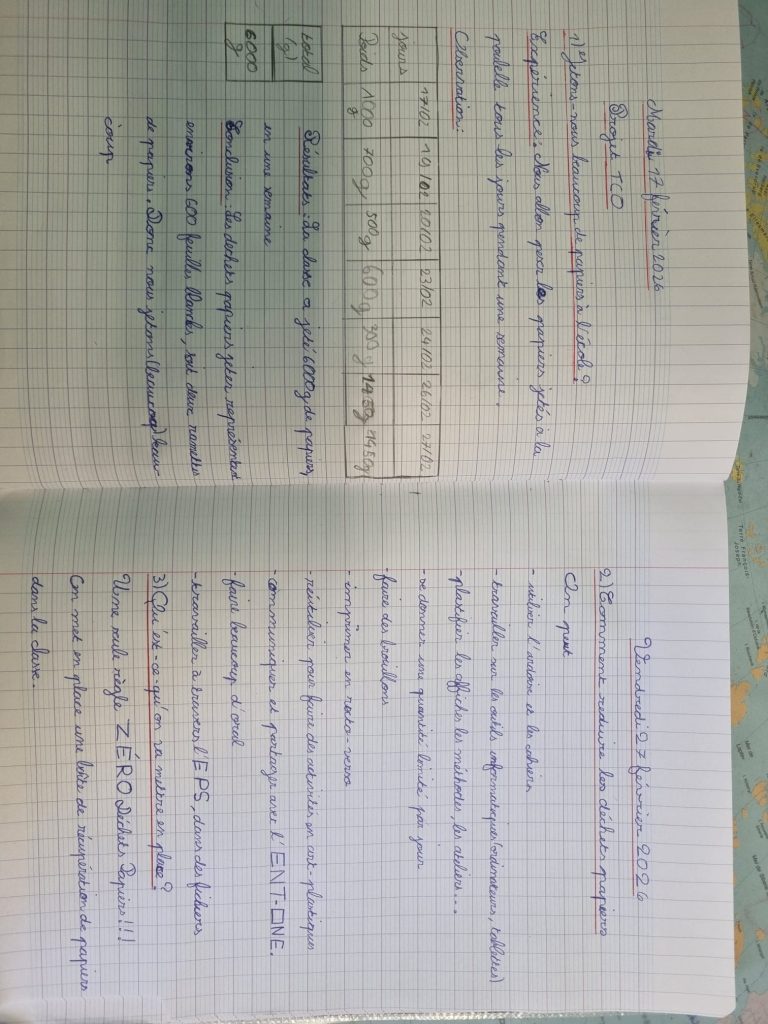 Mardi 17 février 2026
Projet TCO
1) Jetons-nous beaucoup de papiers à l'école?
Expérience: Nous allon peser les papiers jetés à la
poubelle tous les jours pendant une semaine.
Observation:
Jours 17/02 19/02 20/02 23/02 24/02 26/02 27/02
Poids 1000 g 700g 500g 600g 300g 1450g 1450g
total (g)
6000 g
Résultats: La classe a jeté 6000g de papiers
en une semaine
Conclusion: Les déchets papiers jeter représentent
environs 600 feuilles blanches, soit deux ramettes
de papiers. Donc nous jetons (beaucoup) beau-
coup
Vendredi 27 février 2026
2) Comment réduire les déchets papiers
On peut
- utiliser l'ardoise et les cahiers
- travailler sur les outils informatiques (ordinateurs, tablettes)
- plastifier les affiches, les méthodes, les ateliers...
- se donner une quantité limité par jour
- faire des brouillons
- imprimer en recto-verso
- réutiliser pour faire des activités en art-plastiques
- communiquer et partager avec l'ENT-ONE.
- faire beaucoup d'oral
- travailler à travers l'EPS, dans des fichiers
3) Qu'est-ce-qu'on va mettre en place?
Une seule règle ZÉRO Déchets Papiers!!!
On met en place une boîte de récupération de papiers
dans la classe.
Terre François Joseph